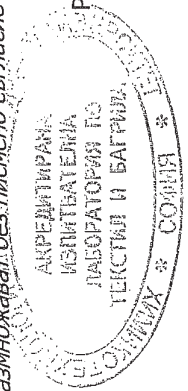 азмножават без писмено съгласие
АКРЕДИТИРАНА
ИЗПИТВАТЕЛНА
ЛАБОРАТОРИЯ ПО
ТЕКСТИЛ И БАГРИЛА
* СОФИЯ *
Р